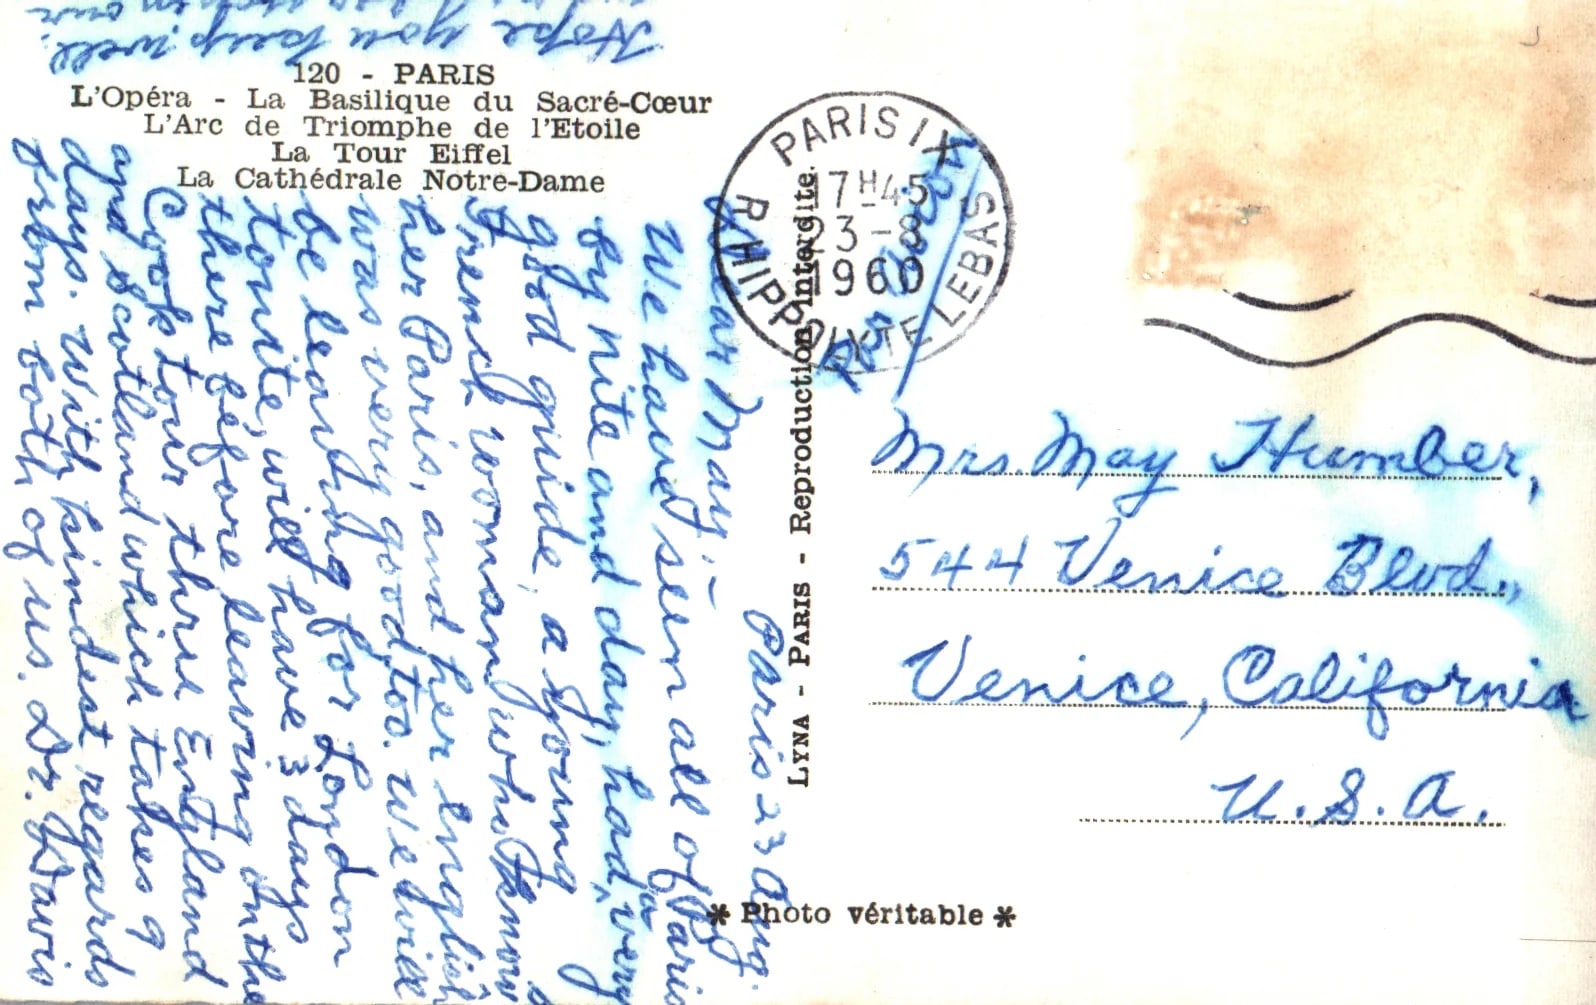 120 - PARIS
L'Opéra - La Basilique du Sacré-Cœur
L'Arc de Triomphe de l'Etoile
La Tour Eiffel
La Cathédrale Notre-Dame
Paris 23 Aug.
Dear May: -
We have seen all of Paris
by nite and day, had a very
good guide, a young
French woman who knows
her Paris, and her english
was very good too. We will
be leaving for London
tonite, will have 3 days
there before leaving on the
Cook tour thru England
and Scotland which takes 9
days. With kindest regards
from both of us. Dr. Davis
Hope you keep well.
PARIS IX
R HIPPOLYTE LEBAS
17H45
23-8
1960
LYNA - PARIS - Reproduction interdite.
Mrs. May Humber,
544 Venice Blvd.,
Venice, California
U.S.A.
* Photo véritable *